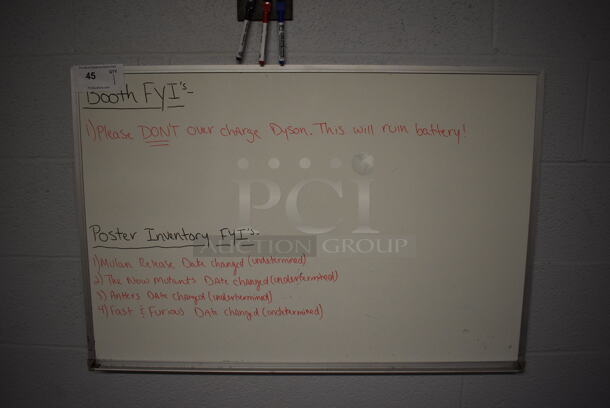 45
Booth FYI's-
1) Please DON'T over charge Dyson. This will ruin battery!
PCI
AUCTION GROUP
Poster Inventory FYI's-
1) Mulan Release Date changed (undetermined)
2) The New Mutants Date changed (undetermined)
3) Antlers Date changed (undetermined)
4) Fast & Furious Date changed (undetermined)